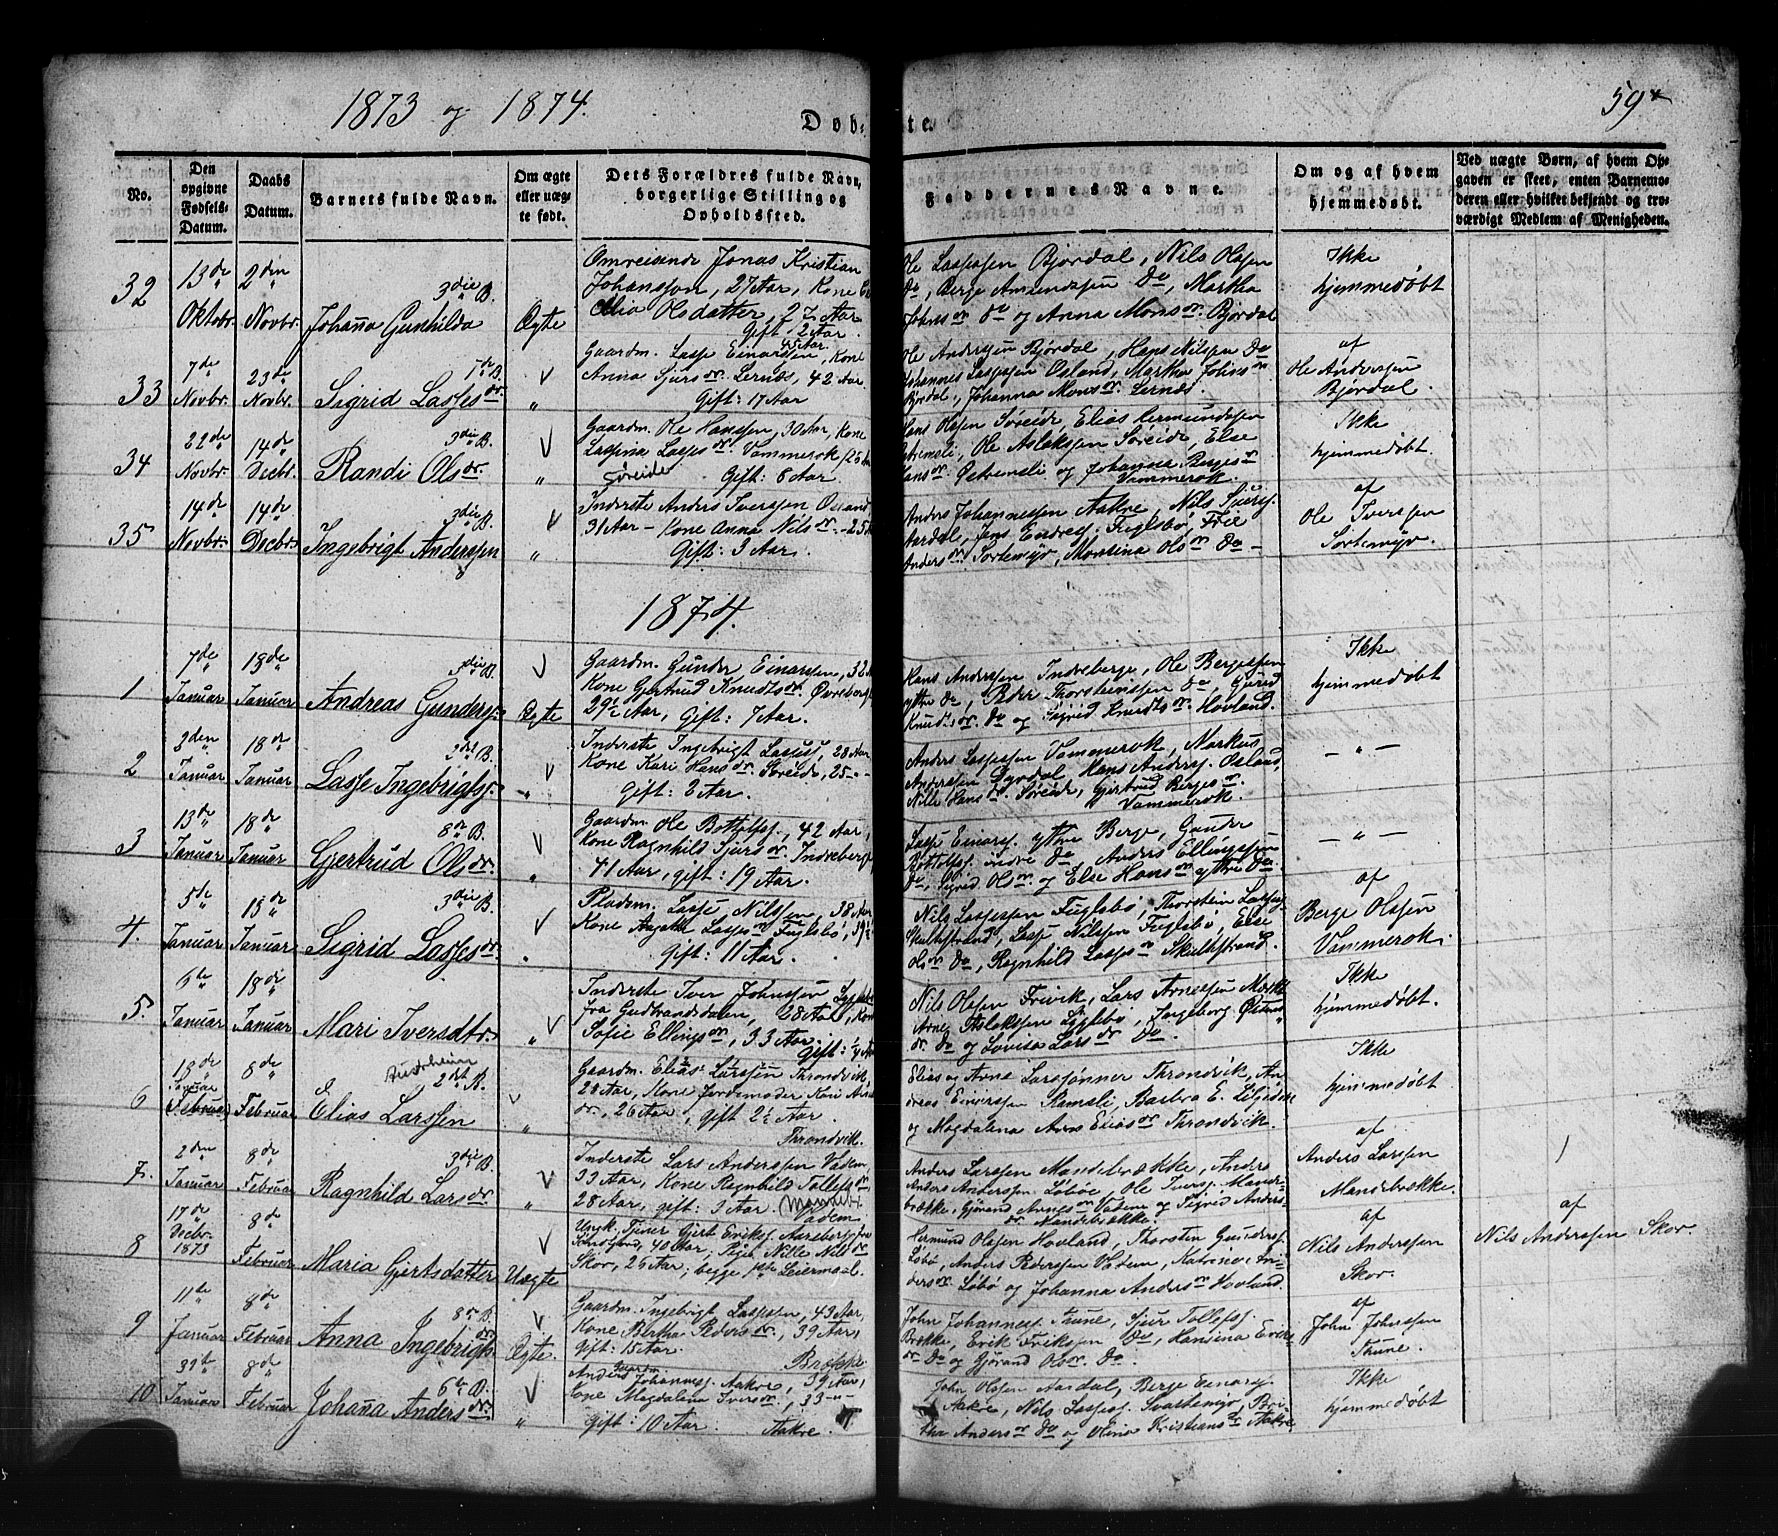 1873 og 1874.
59
Døb- te.
No.
Den opgivne Fødsels- Datum.
Daabs Datum.
Barnets fulde Navn.
Om ægte eller uæg- te født.
Dets Forældres fulde Navn, borgerlige Stilling og Opholdsfted.
Faddernes Navne.
Om og af hvem hjemmedøbt.
Ved uægte Børn, af hvem Op- gaven er skeet, enten Barnemo- deren eller hvilket bekjendt og tro- værdigt Medlem af Menigheden.
32
13de Oktobr.
2den Novbr.
3die B.
Johanna Gunhilda
Ægte
Omreisende Jonas Kristian
Johanssen, 27 Aar, Kone
Olsdatter, 27½ Aar
Gift 2 Aar.
Ole Lassesen Bjørdal, Nils Olsen
Do, Berge Amundssen Do, Martha
Johnsdr Do og Anna Monsdr. Bjørdal
Ikke
hjemmedøbt
33
7de Novbr.
23de Novbr.
1ste B.
Sigrid Lassesdr
"
Gaardm. Lasse Einarssen, 45 Aar, Kone
Anna Sjursdr. Lernæs, 42 Aar.
Gift: 17 Aar
Ole Anderssen Bjørdal, Hans Nilssen Do
Johannes Lassesen Osland, Martha Johnsdr
Bjørdal, Johanna Monsdr. Lernæs.
af
Ole Anderssen
Bjørdal.
34
22de Novbr.
14de Decbr.
3die B.
Randi Olsdr
"
Gaardm. Ole Hanssen, 30 Aar, Kone
Lassina Lassesdr. Vammerok, 25
Søreide Gift: 8 Aar.
Hans Olsen Søreide, Elias Hermundssen
Østremsli, Ole Aslakssen Søreide, Else
Hansdr. Østremsli og Johanna Bergesdr
Vammerok.
Ikke
hjemmedøbt
35
14de Novbr.
14de Decbr.
3die B.
Ingebrigt Anderssen
"
Inderste Anders Iverssen Osland
31 Aar – Kone Anna Nilsdr. – 25
Gift: 3 Aar.
Anders Johannessen Aakre, Nils Sjurss.
Aardal, Jens Endress. Fuglsbø,
Andersdr. Sortemyr, Monsina Olsdr Do –
af
Ole Iverssen
Sortemyr.
1874.
1
7de Januar
18de Januar
3die B.
Andreas Gunderss.
Ægte
Gaardm. Gunder Einarssen, 32
Kone Gjertrud Knudtsdr. Øvreberge
29½ Aar, Gift: 7 Aar.
Hans Anderssen Indreberge, Ole Bergessen
yttre Do, Peder Thorsteinssen Do, Gurid
Knudtsdr. Do og Sigrid Knudtsdr. Hovland.
Ikke
hjemmedøbt
2
3den Januar
18de Januar
2det B.
Lasse Ingebrigtss.
"
Inderste Ingebrigt Lasses., 28 Aar
Kone Kari Hansdr. Søreide, 25 –"–
Gift: 2 Aar.
Anders Lassesen Vammerok, Markus
Anderssen Dyrdal, Hans Anderss. Osland,
Nille Hansdr. Søreide, Gjertrud Bergesdr.
Vammerok.
– " –
3
13de Januar
18de Januar
8de B.
Gjertrud Olsdr.
"
Gaardm. Ole Bottolfss., 42 Aar,
Kone Ragnhild Sjursdr Indreberge
41 Aar, gift: 19 Aar.
Lasse Einarss. yttre Berge, Gunder
Bottolfss. indre Do, Anders Ellingssen
Do, Sigrid Olsdr. og Else Hansdr yttre Do.
– " –
4.
5te Januar
18de Januar
3die B.
Sigrid Lassesdr.
"
Pladsm. Lasse Nilssen, 38 Aar
Kone Agatha Lassesdr Fuglsbø, 39½
Gift: 11 Aar.
Nils Lassesen Fuglsbø, Thorstein Lasses.
Skulestrand, Lasse Nilssen Fuglsbø, Else
Olsdr Do, Ragnhild Lassesdr Skulestrand.
af
Berge Olssen
Vammerok.
5.
6te Januar
18de Januar
Mari Iversdtr.
"
Inderste Iver Johnssen
fra Gudbrandsdalen, 28 Aar, Kone
Sofie Ellingsdr, 33 Aar.
Gift:
Nils Olsen Frivik, Lars Arnessen
Arne Aslakssen Liglebø, Ingeborg
dr. Do og Lovisa Larsdr Do.
Ikke
hjemmedøbt.
6
18de Januar Februar
8de Februar
2det B.
Elias Larssen
"
Gaardm. Elias Larssen Throndvik
28 Aar, Kone Jordemoder Kari
dr., 26 Aar, gift 2½ Aar
Throndvik.
Elias og Arne Larssønner Throndvik, An-
dreas Einerssen Ramsli, Barbra E.
og Magdalena Anna Eliasdr Throndvik.
Ikke
hjemmedøbt
7.
2den Januar
8de Februar
3die B.
Ragnhild Larsdr
"
Inderste Lars Anderssen Vadem,
33 Aar, Kone Ragnhild Tollefsdr
28 Aar, gift: 3 Aar.
Vadem
Anders Larssen Mandsbrække, Anders
Anders Anderssen Løbøe, Ole Iverss. Mands-
brække, Gjørand Arnesdr Vadem og Sigrid Anders-
dr. Mandsbrække.
af
Anders Larssen
Mandsbrække.
8
17de Decbr. 1873
8de Februar
Maria Gjertsdatter
Uægte
Ungk. Tjener Gjert Erikss. Aarsberg fra
40 Aar; Pige Nille Nilsdr
Skor, 26 Aar; begge 1ste Leiermaal.
Hermund Olssen Hovland, Thorsten Gunderss.
Løbø, Anders Pederssen Vadem, Katrine An-
dersdr. Løbø og Johanna Andersdr Hovland.
af
Nils Anderssen
Skor.
af
Nils Anderssen Skor.
9
11te Januar
8de Februar
8de B.
Anna Ingebrigtsdr.
Ægte.
Gaardm. Ingebrigt Lassesen, 43 Aar,
Kone Bertha Pedersdr, 39 Aar,
Gift: 15 Aar.
Brække
John Johanness. Thune, Sjur Tollefss.
Brække, Erik Erikssen Do, Hansina Eriks-
dr Do og Gjørand Olsdr. Do.
af
John Johnssen
Thune.
10
8de Februar
Januar
6te B.
Johanna Andersdr.
"
Gaardm.
Anders Johanness. Aakre, 39 Aar,
Kone Magdalena Iversdr, 33 –"–
Gift: 10 Aar. Aakre.
John Olssen Aardal, Berge Einarss.
Aakre, Nils Lassess. Svaltemyr, Bri-
tha Andersdr Do og Olina Kristiansdr Aakre.
Ikke
hjemmedøbt